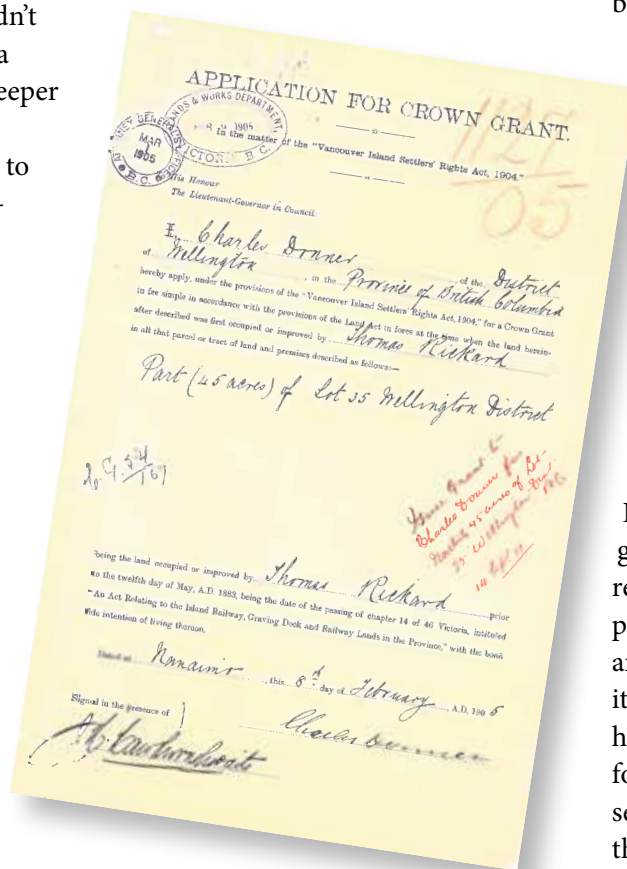 dn't
a
eeper
to
-
b
APPLICATION FOR CROWN GRANT.
LANDS & WORKS DEPARTMENT,
1905
VICTORIA, B.C.
ATTORNEY GENERAL'S OFFICE
MAR
1905
B.C.
1127
05
In the matter of the "Vancouver Island Settlers' Rights Act, 1904."
His Honour
The Lieutenant-Governor in Council:
I, Charles Donner of the District
of Wellington, in the Province of British Columbia
hereby apply, under the provisions of the "Vancouver Island Settlers' Rights Act, 1904," for a Crown Grant
in fee simple in accordance with the provisions of the Land Act in force at the time when the land herein-
after described was first occupied or improved by Thomas Rickard
in all that parcel or tract of land and premises described as follows:—
Part (45 acres) of Lot 35 Wellington District
54
167
Grant to
Charles Donner for
45 acres of Lot
35 Wellington Dist
14
being the land occupied or improved by Thomas Rickard prior
to the twelfth day of May, A.D. 1883, being the date of the passing of chapter 14 of 46 Victoria, intituled
"An Act Relating to the Island Railway, Graving Dock and Railway Lands in the Province," with the bona
fide intention of living thereon.
Dated at Nanaimo, this 8th day of February A.D. 1905
Signed in the presence of )
Charles Donner
I
g
re
p
a
it
h
fo
se
th